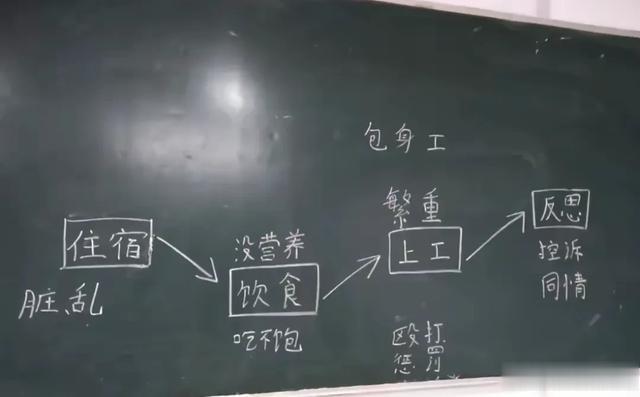 包身工
繁重
反思
住宿
没营养
上工
控诉
脏、乱
饮食
同情
吃不饱
殴打
惩罚